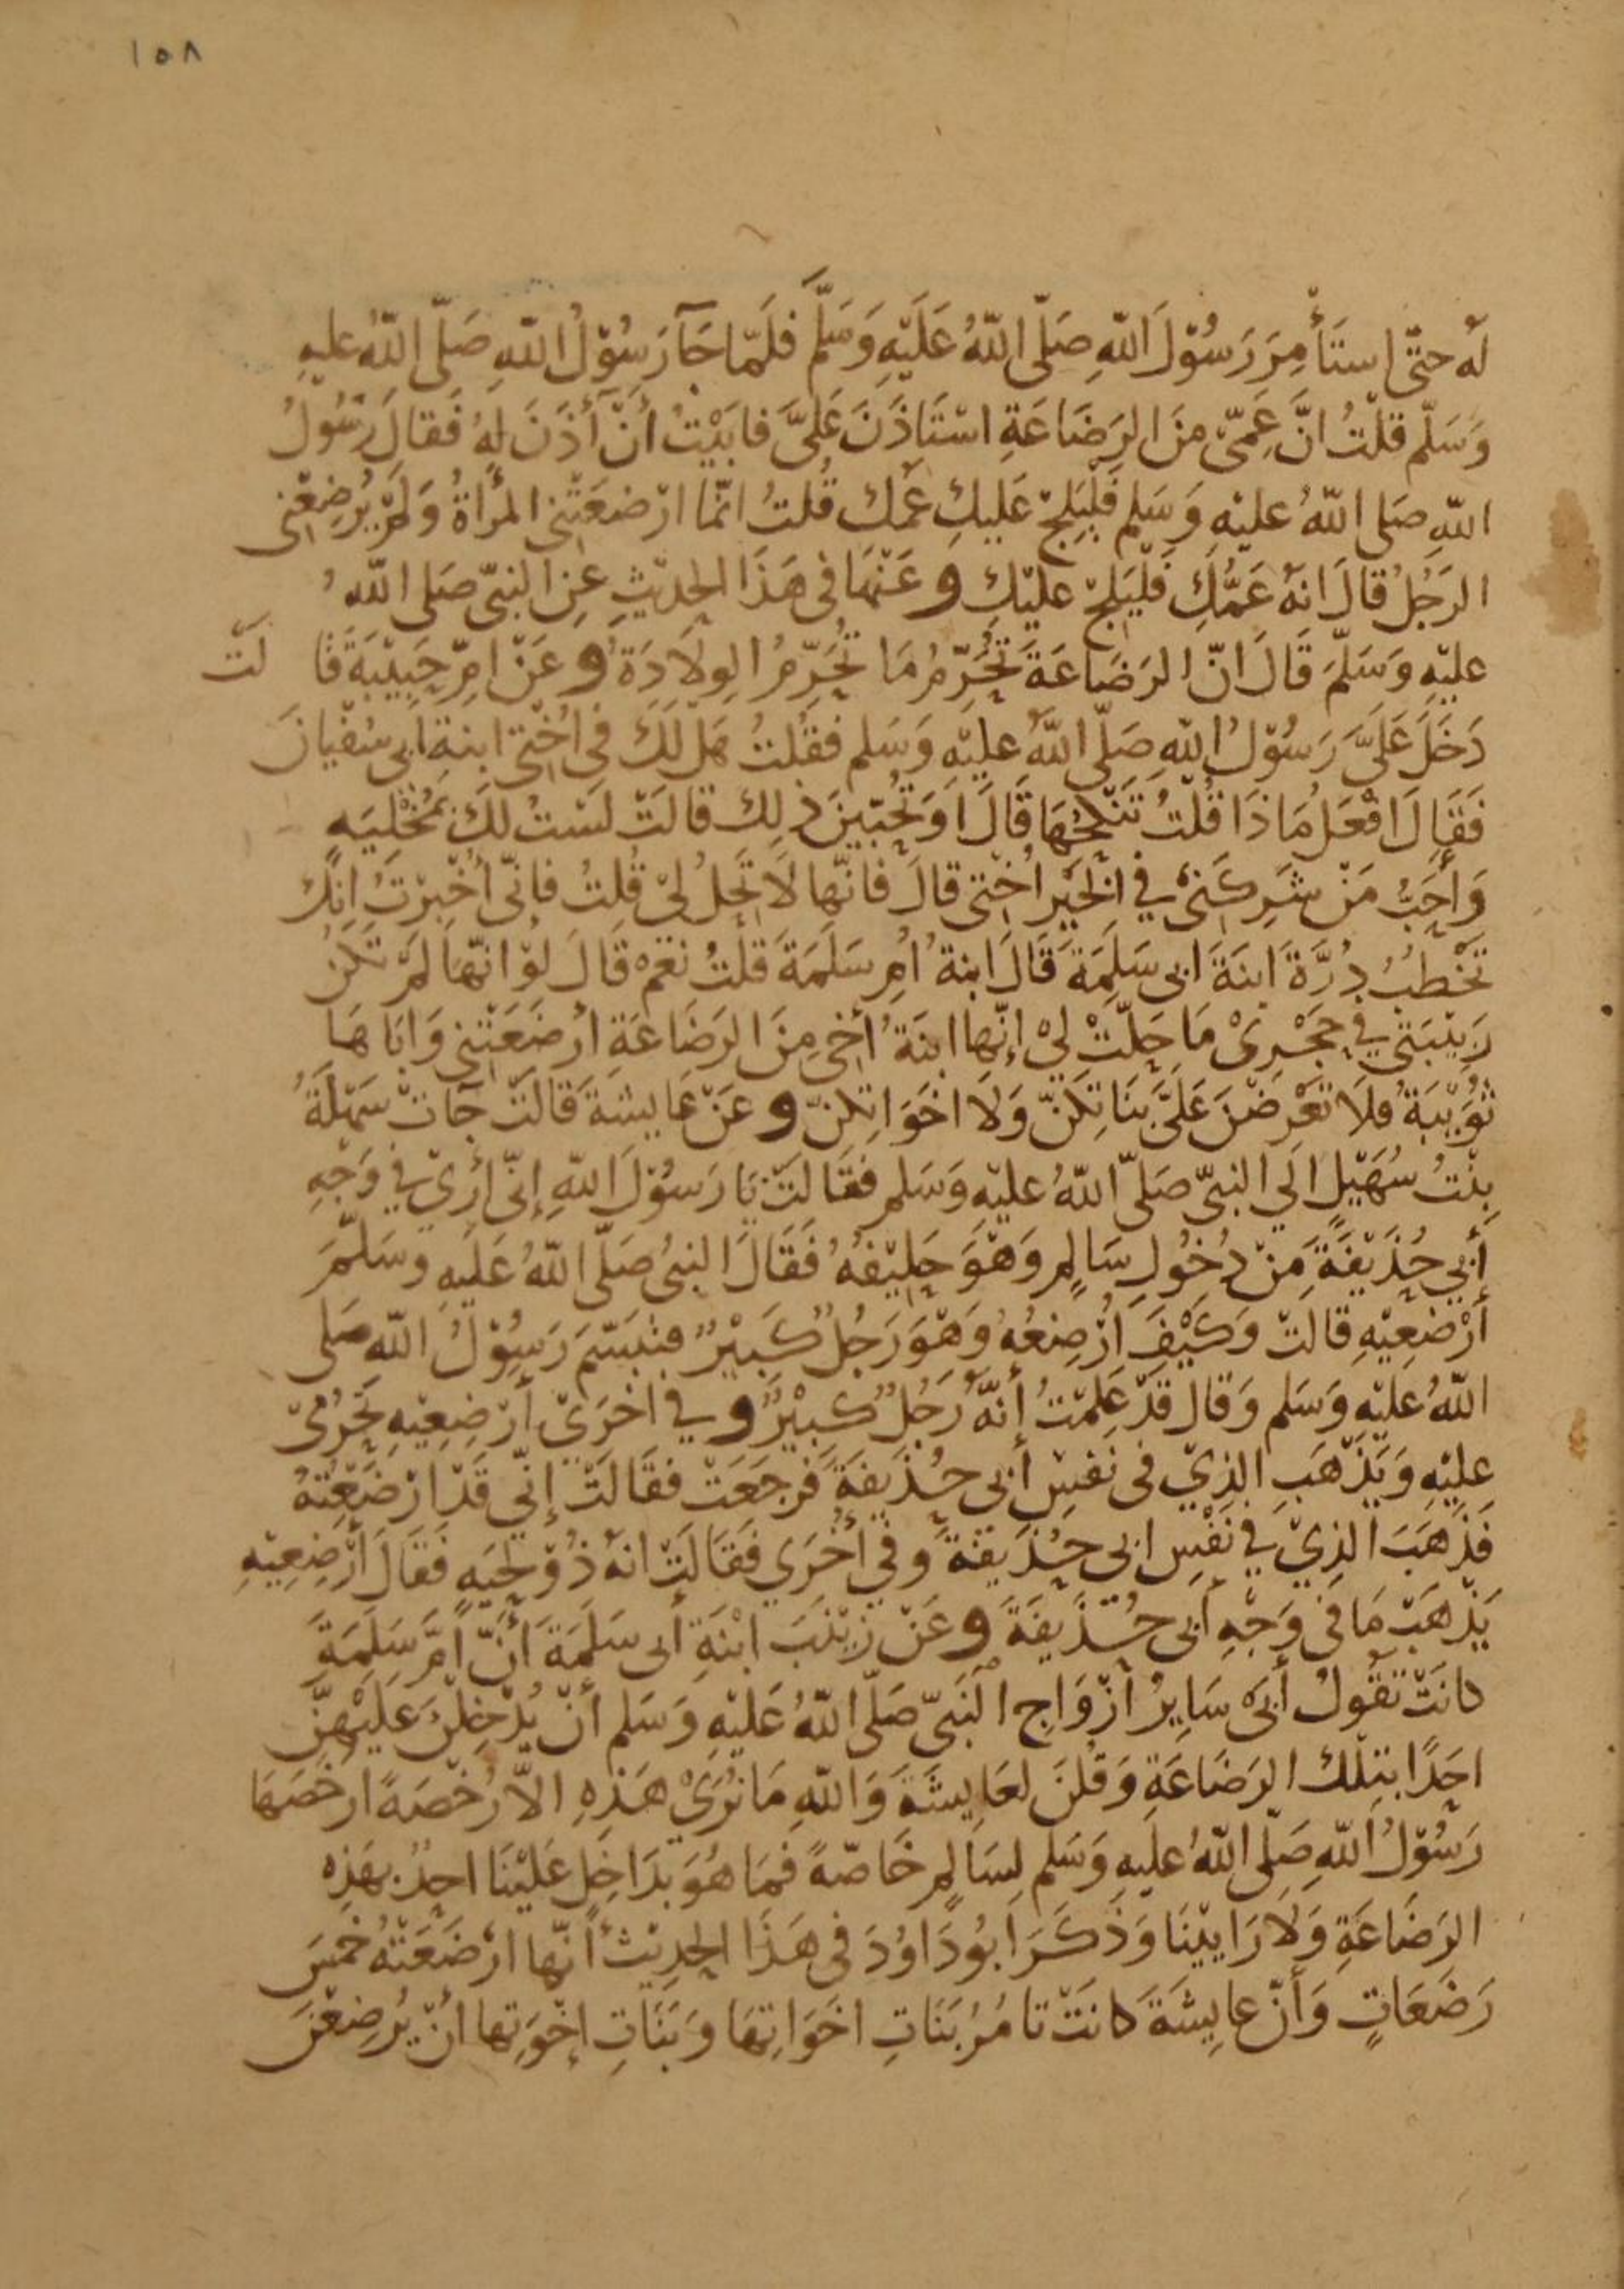 ١٥٨
لَه حتّى استَأمِرَ رَسُوْلَ اللّهِ صَلّى اللّهُ عَلَيْهِ وَسَلَّم فَلَمّا جَآ رَسُوْلُ اللّهِ صَلّى اللّهُ عليهِ
وَسَلّم قلْتُ انَّ عَمِّىّ مِنَ الرَضَاعَةِ اسْتَاذَنَ عَلَىَّ فابَيْتُ أنْ أَذَنَ لَهُ فَقالَ رَسُولُ
اللّهِ صَلى اللّهُ عليْهِ وَسَلم فَلْيَلِجْ عَلَيكِ عَمّك قُلتُ انّما ارْضعَتْنِى المرْأةُ وَلَمْ يُرْضِعْنِى
الرَجُلُ قالَ انهُ عَمُّكِ فَلْيَلِجْ عليْكِ وعَنْهَا فى هَذَا الحديْثِ عنِ النبىّ صَلى اللّهُ
عليْهِ وَسَلّمَ قَالَ انّ الرَضَاعَةَ تُحَرّمُ مَا تُحَرِّمُ الوِلَادَةُ وعَنْ امِّ حَبِيْبَةَ قَالَتْ
دَخَلَ عَلَىَّ رَسُوْلُ اللّهِ صَلّى اللّهُ عليْهِ وَسَلم فقُلتُ هَلْ لَكَ فى اُخْتِى ابنةِ ابى سُفْيانَ
فَقَالَ افْعَلُ مَاذَا قُلْتُ تَنْكِحُهَا قَالَ اَوَ تُحِبّيْنَ ذلِك قالَتْ لَسْتُ لكَ بمُخْلِيَهٍ
وَأحَبُّ مَنْ شَرِكَنِىْ في الخَيْرِ اُخْتى قالَ فانّها لَا تَحِلُ لِيْ قُلتُ فإنّى أُخْبِرْتُ انكَ
تَخْطبُ دُرَّةَ ابنَةَ ابى سَلَمَةَ قَالَ ابنةُ اُمِ سَلَمَةَ قلتُ نَعَمْ قَالَ لوْ انّهَا لمْ تَكنْ
رَبِيْبَتى في حجْرِىْ مَا حَلّتْ لِيْ إنّها ابنَةُ أخِى مِنَ الرَضَاعَةِ أرْضَعَتْنِى وَابَاهَا
ثُوَيْبَةُ فلَا تعْرضْنَ عَلَىَّ بنَاتِكنّ وَلَا اخَوَاتِكنّ وعَنْ عَايِشَةَ قَالَتْ جَاتْ سَهْلَةُ
بِنْتُ سُهَيْلٍ الَي النبىّ صَلّى اللّهُ عليْهِ وَسَلم فقَالَتْ يَا رَسُوْلَ اللّهِ إنّى أرىْ في وَجْهِ
أَبي حُذَيْفَةَ مِنْ دُخُولِ سَالِمٍ وَهْوَ حَلِيْفُهُ فَقَالَ النبىُ صَلّى اللّهُ عَلَيْهِ وَسَلّمَ
أرْضِعِيْهِ قالتْ وَكَيْفَ ارْضِعُهُ وَهْوَ رَجُلٌ كَبِيْرٌ فتَبَسّمَ رَسُوْلُ اللّهِ صَلى
اللّهُ عليْهِ وَسَلم وَقالَ قَدْ عَلِمْتُ أنّهُ رَجُلٌ كَبِيْرٌ وفي اخرَيْ أرْضِعِيْهِ تَحْرُمىْ
عليْهِ وَيَذْهَبِ الذِيْ فى نَفْسِ أبى حُذَيفَةَ فَرجَعَتْ فقَالَتْ إنّي قَدْ ارْضَعْتهُ
فَذَهَبَ الذِيْ في نَفْسِ ابى حُذَيفةَ وَفي أُخْرَي فَقَالَتْ انهُ ذُوْ لِحْيَهٍ فَقَالَ أرْضِعِيْهِ
يَذْهَبْ مَا فى وَجْهِ أبى حُذَيفَةَ وعَنْ زَيْنَبَ ابْنَةِ أبى سَلَمَةَ أنّ أُمّ سَلَمَةَ
كانَتْ تقُولُ أبَىْ سَايِرُ ازْوَاجِ النَبىّ صَلّى اللّهُ عَليْهِ وَسَلم أنْ يُدْخِلْنَ عَليْهِنّ
احَدًا بتِلْك الرَضَاعَةِ وَقُلْنَ لعَايِشَةَ وَاللّهِ مَا نُرَىْ هَذِهِ الاّ رُخْصَةً ارخَصَهَا
رَسُوْلُ اللّهِ صَلّى اللّهُ عليهِ وَسَلم لِسَالِمٍ خَاصّةً فَمَا هُوَ بدَاخِلٍ عَلَيْنَا احدٌ بهَذِه
الرَضَاعَةِ وَلَا رَايِيْنَا وَذَكَرَ ابُودَاوُدَ فى هَذَا الحدِيْث أنّها ارْضَعَتْهُ خَمْسَ
رَضَعَاتٍ وَأنّ عايِشَةَ كانَتْ تامُرُ بَنَاتِ اخَوَاتِهَا وَبَنَاتِ إخْوَتِها انْ يُرضِعْنَ